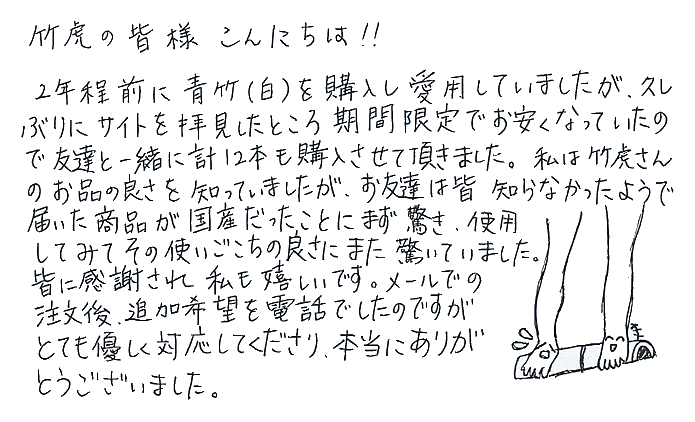 竹虎の皆様 こんにちは!!
2年程前に青竹(白)を購入し愛用していましたが、久し
ぶりにサイトを拝見したところ期間限定でお安くなっていたの
で友達と一緒に計12本も購入させて頂きました。私は竹虎さん
のお品の良さを知っていましたが、お友達は皆知らなかったようで
届いた商品が国産だったことにまず驚き、使用
してみてその使いごこちの良さにまた驚いていました。
皆に感謝され私も嬉しいです。メールでの
注文後、追加希望を電話でしたのですが
とても優しく対応してくださり、本当にありが
とうございました。